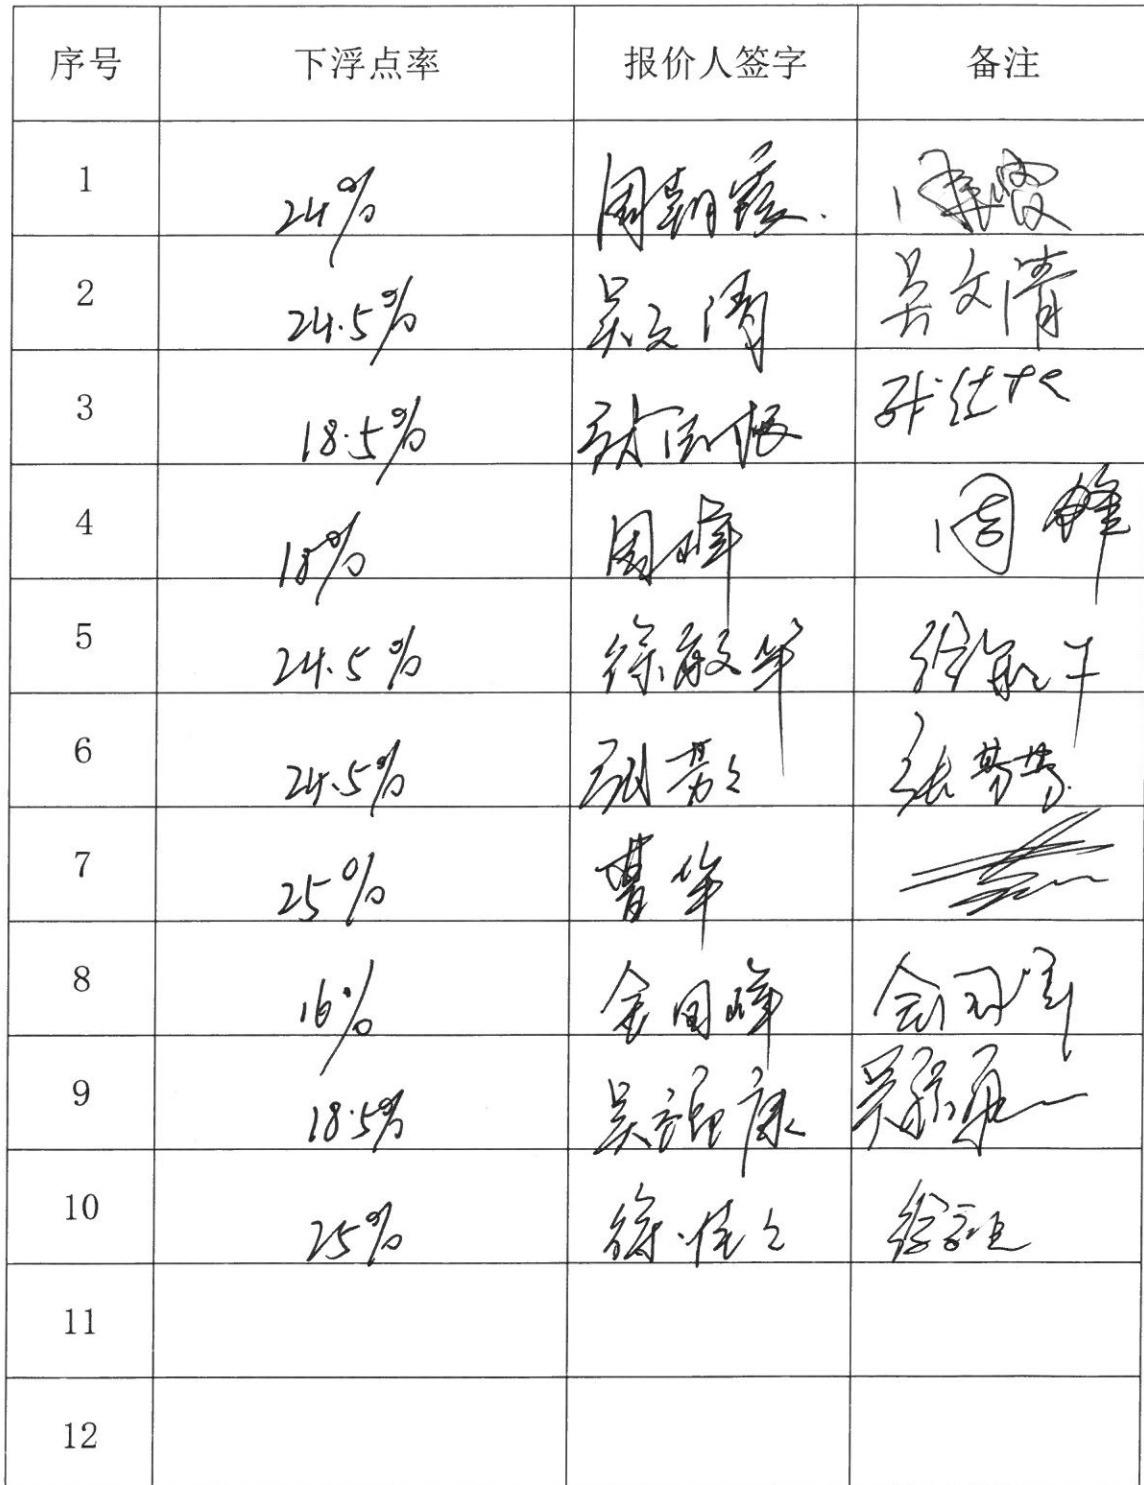 序号 下浮点率 报价人签字 备注
1 24% 周朝霞
2 24.5% 吴文清 吴文清
3 18.5%
4 18% 周峰 周峰
5 24.5% 徐敏华 徐敏华
6 24.5% 张芬芬 张芬芬
7 25% 曹华
8 16% 金国峰 金国峰
9 18.5% 吴福康
10 25% 徐佳
11
12